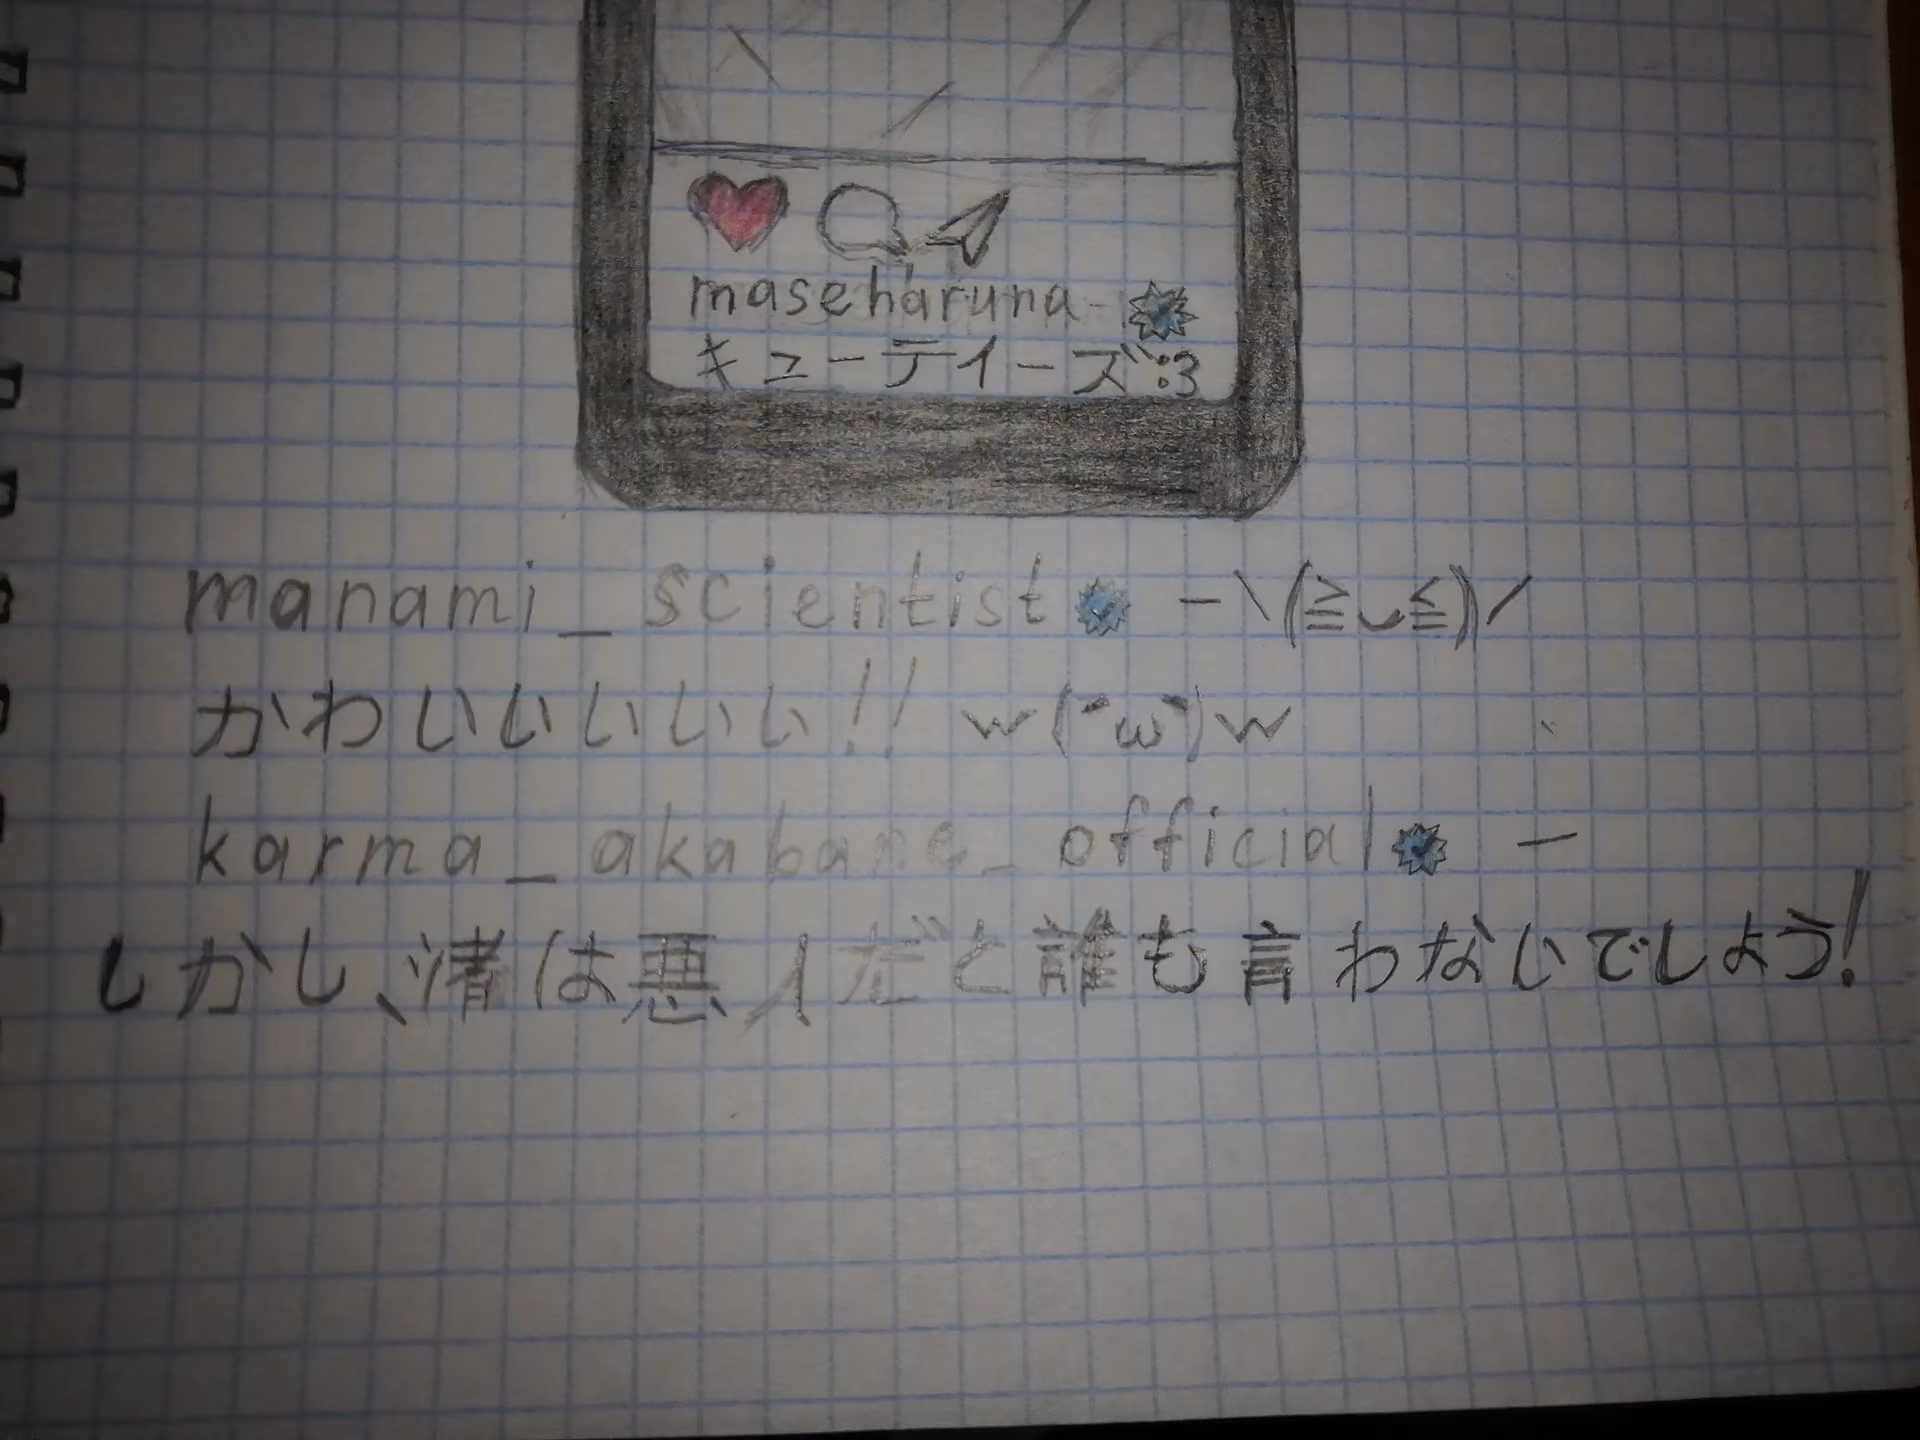 maseharuna
キューティーズ:3
manami_scientist - \(≧◡≦)/
かわいいいいい!! w(´ω`)w
karma_akabane_official -
しかし、渚は悪人だと誰も言わないでしょう!